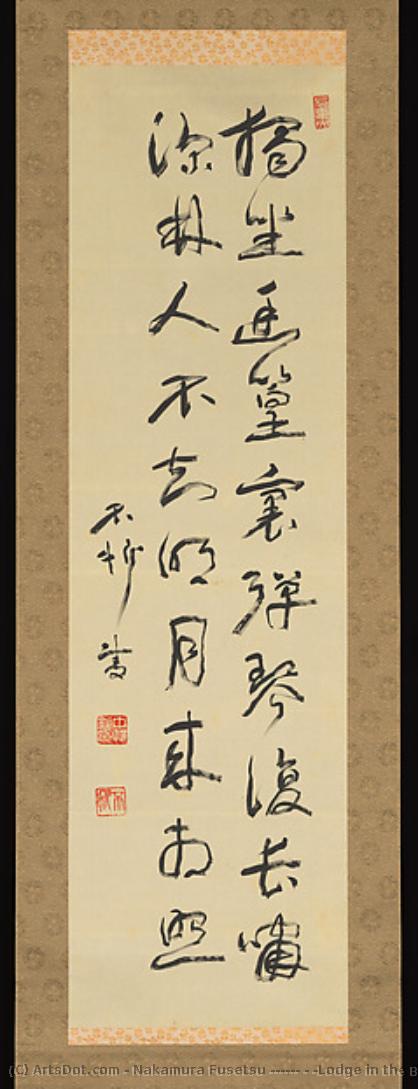 獨坐幽篁裏彈琴復長嘯
深林人不知明月来相照
不折書
(C) ArtsDot.com - Nakamura Fusetsu ------ - -Lodge in the B